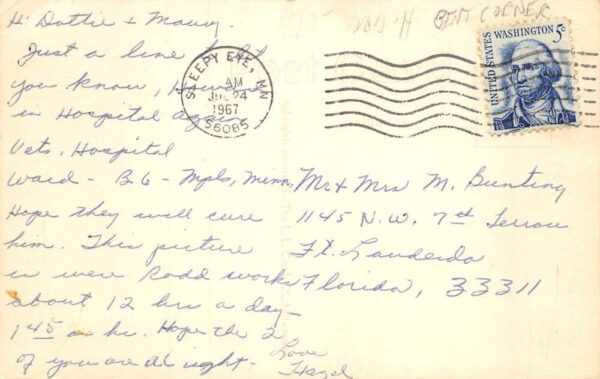 Hi Dottie + Maury.
Just a line to let
you know,
in Hospital again
Vets. Hospital
Ward - B6 - Mpls, Minn.
Hope they will cure
him. This picture
is were Rodd works
about 12 hrs a day -
1 45 an hr. Hope the 2
of you are all right -
Love
Hazel
BENT CORNER
SLEEPY EYE, MN
AM
24
1967
56085
UNITED STATES
WASHINGTON 5¢
Mr & Mrs M. Bunting
1145 N.W. 7th Terrace
Ft. Lauderda
Florida, 33311